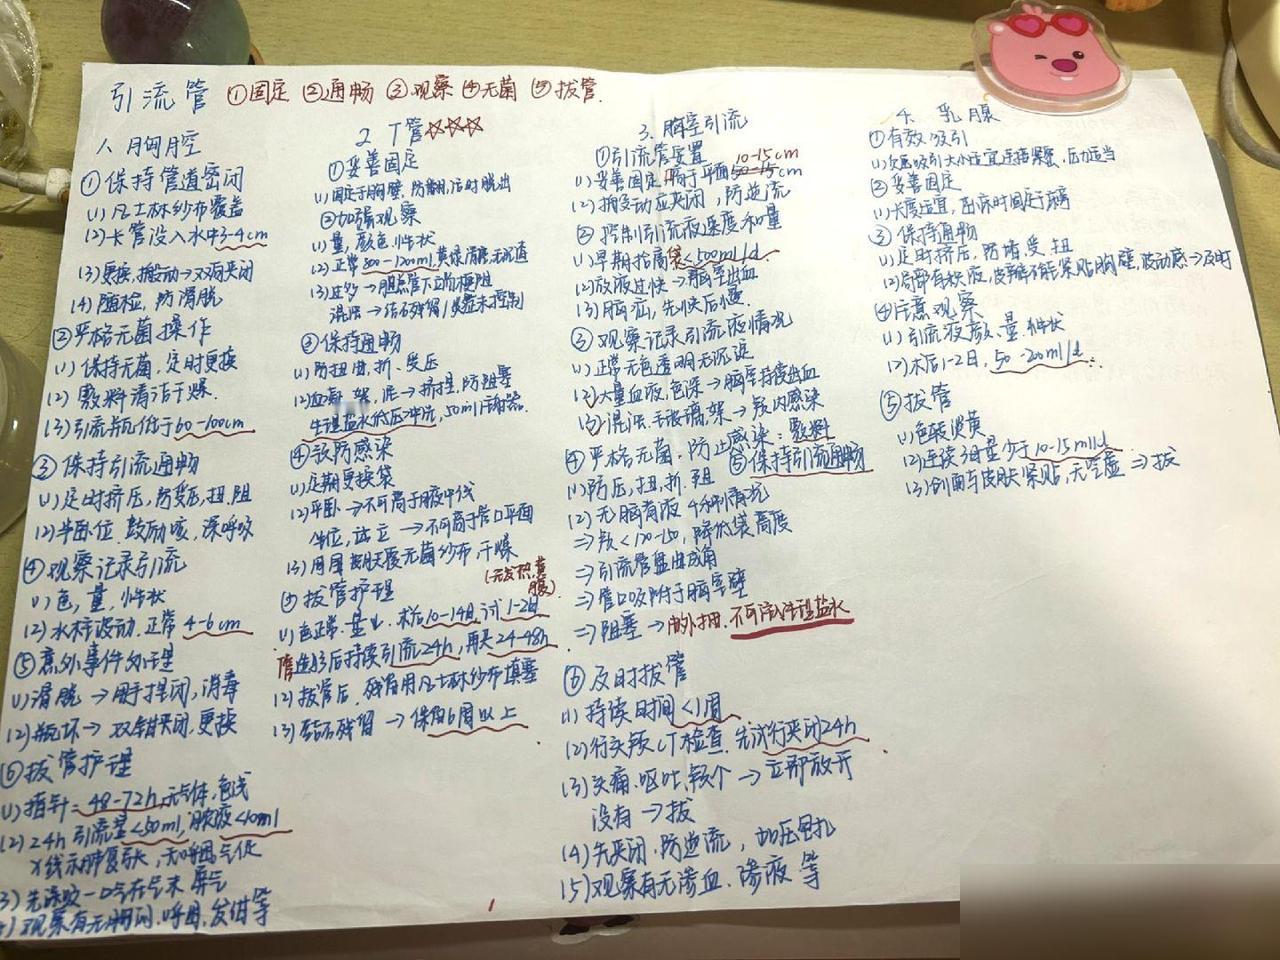 引流管 ①固定 ②通畅 ③观察 ④无菌 ⑤拔管.
1. 胸腔
①保持管道密闭
(1)凡士林纱布覆盖
(2)长管没入水中3-4cm
(3)更换,搬动→双两夹闭
(4)随检,防滑脱
②严格无菌操作
(1)保持无菌,定时更换
(2)敷料清洁干燥.
(3)引流瓶低于60-100cm
③保持引流通畅
(1)定时挤压,防受压,扭,阻
(2)半卧位,鼓励咳,深呼吸
④观察记录引流
(1)色,量,性状
(2)水柱波动,正常4-6cm
⑤意外事件处理
(1)滑脱→用手捏闭,消毒
(2)瓶坏→双钳夹闭,更换
⑥拔管护理
(1)指针=48-72h,无气体,色浅
(2)24h引流量<50ml,脓液<10ml
X线示肺复张,无呼困气促
(3)先深吸一口气在气末屏气
观察有无胸闷.呼困,发绀等
2. T管☆☆☆
①妥善固定
(1)固定于腹壁,防翻,活时脱出
②加强观察
(1)量,颜色,性状
(2)正常800-1200ml黄绿清亮无沉渣
(3)过多→胆总管下端梗阻
混浊→结石残留/炎症未控制
③保持通畅
(1)防扭曲,折、受压
(2)血凝,絮,泥→挤捏,防阻塞
生理盐水低压冲洗,50ml注射器.
④预防感染
(1)定期更换袋
(2)平卧→不可高于腋中线
半位,站立→不可高于管口平面
(3)周围皮肤覆无菌纱布,干燥
⑤拔管护理 (无发热黄腹)
(1)色正常.量少.术后10-14日,试1-2日
造影后持续引流24h,再夹24-48h
(2)拔管后,残留用凡士林纱布填塞
(3)结石残留→保留6周以上.
3. 脑室引流
①引流管安置
(1)妥善固定,高于平面10-15cm
(2)搬动应夹闭,防逆流
②控制引流液速度和量
(1)早期抬高袋<500ml/d
(2)放液过快→脑室出血
(3)脑疝,先快后慢.
③观察记录引流液情况
(1)正常无色透明无沉淀
(2)大量血液,色深→脑室持续出血
(3)混浊,毛玻璃,絮→颅内感染
④严格无菌.防止感染:敷料
⑤保持引流通畅
(1)防压,扭,折.阻
(2)无脑脊液4种情况
⇒颅<120-150,降低袋高度
⇒引流管盘曲成角
⇒管口吸附于脑室壁
⇒阻塞→向外抽.不可流入生理盐水
⑥及时拔管
(1)持续时间<1周
(2)行头颅CT检查,先试行夹闭24h.
(3)头痛.呕吐,颅个→立即放开
没有→拔
(4)先夹闭.防逆流,加压包扎
(5)观察有无渗血.渗液.等
4. 乳腺
①有效吸引
(1)负压吸引大小适宜,连接紧密,压力适当
②妥善固定
(1)长度适宜,卧床时固定于床旁
③保持通畅
(1)定时挤压,防堵,受,扭
(2)局部有积液,皮瓣不能紧贴胸壁,波动感→及时
④注意观察
(1)引流液颜,量.性状
(2)术后1-2日,50-200ml/d.
⑤拔管
(1)色转淡黄
(2)连续3日量少于10-15ml/d
(3)创面与皮肤紧贴,无空虚⇒拔